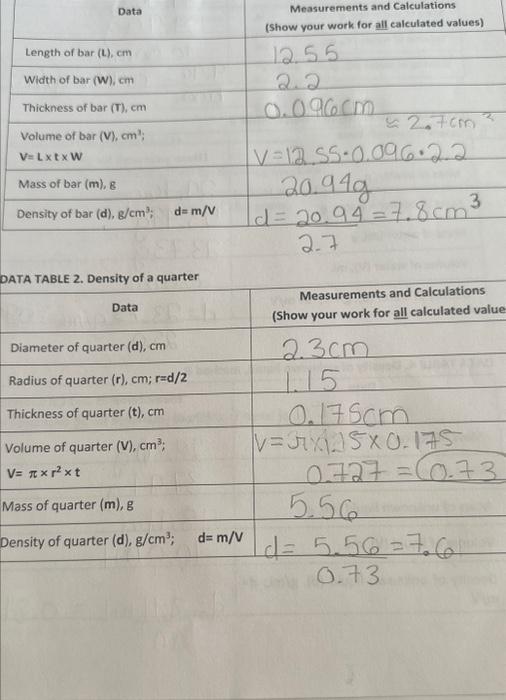 Data
Measurements and Calculations
(Show your work for all calculated values)
Length of bar (L), cm
12.55
Width of bar (W), cm
2.2
Thickness of bar (T), cm
0.096cm
≈ 2.7cm³
Volume of bar (V), cm³;
V= L x t x W
V=12.55·0.096·2.2
Mass of bar (m), g
20.94g
Density of bar (d), g/cm³; d= m/V
d = 20.94 = 7.8cm³
2.7
DATA TABLE 2. Density of a quarter
Data
Measurements and Calculations
(Show your work for all calculated value
Diameter of quarter (d), cm
2.3cm
Radius of quarter (r), cm; r=d/2
1.15
Thickness of quarter (t), cm
0.175cm
Volume of quarter (V), cm³;
V= π x r² x t
V=π×1.15×0.175
0.727 = 0.73
Mass of quarter (m), g
5.56
Density of quarter (d), g/cm³; d= m/V
d= 5.56 = 7.6
0.73